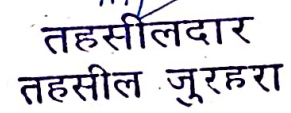 तहसीलदार
तहसील जुरहरा